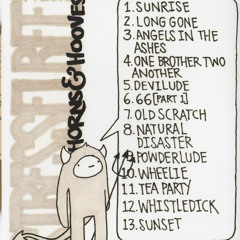 HORNS & HOOVES
1. SUNRISE
2. LONG GONE
3. ANGELS IN THE
ASHES
4. ONE BROTHER TWO
ANOTHER
5. DEVILUDE
6. 66 [PART 1]
7. OLD SCRATCH
8. NATURAL
DISASTER
9. POWDERLUDE
10. WHEELIE
11. TEA PARTY
12. WHISTLEDICK
13. SUNSET